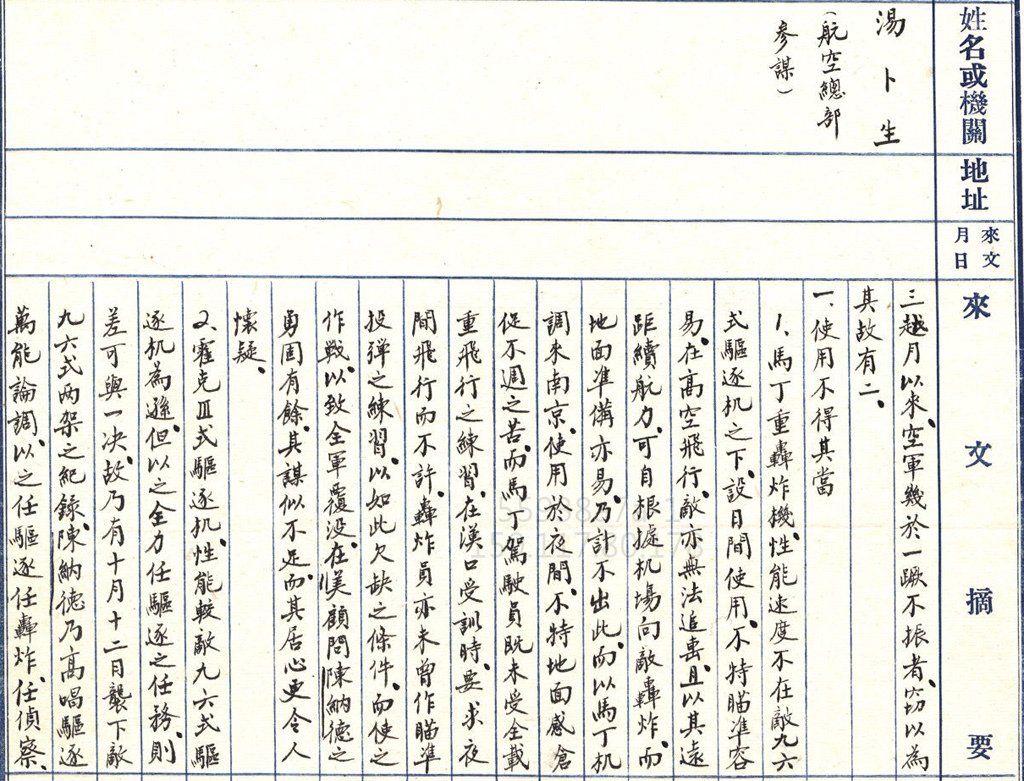 姓名或機關
地址
來文
月日
來文摘要
湯卜生
（航空總部
參謀）
三越月以來、空軍幾於一蹶不振者、窃以為
其故有二、
一、使用不得其當
1、馬丁重轟炸機、性能速度不在敵九六
式驅逐机之下、設日間使用、不特瞄準容
易、在高空飛行、敵亦無法追击、且以其遠
距續航力、可自根據机場向敵轟炸、而
地面準備亦易、乃計不出此、而以馬丁机
調來南京、使用於夜間、不特地面感倉
促不週之苦、而馬丁駕駛員既未受全載
重飛行之練習、在漢口受訓時、要求夜
間飛行而不許、轟炸員亦未曾作瞄準
投弹之練習、以如此欠缺之條件、而使之
作戰、以致全軍覆没、在美顧問陳納德之
勇固有餘、其謀似不足、而其居心更令人
懷疑、
2、霍克Ⅲ式驅逐机、性能較敵九六式驅
逐机為遜、但以之全力任驅逐之任務、則
差可與一决、故乃有十月十二日襲下敵
九六式两架之紀錄、陳納德乃高唱驅逐
萬能論調、以之任驅逐任轟炸、任偵察、